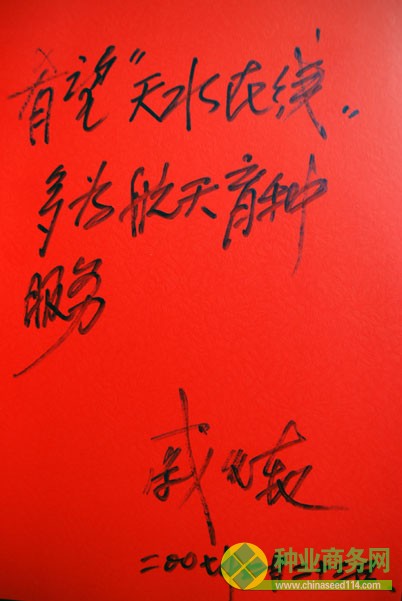 希望“天水在线”
多为航天育种
服务
二00七
种业商务网
www.chinaseed114.com